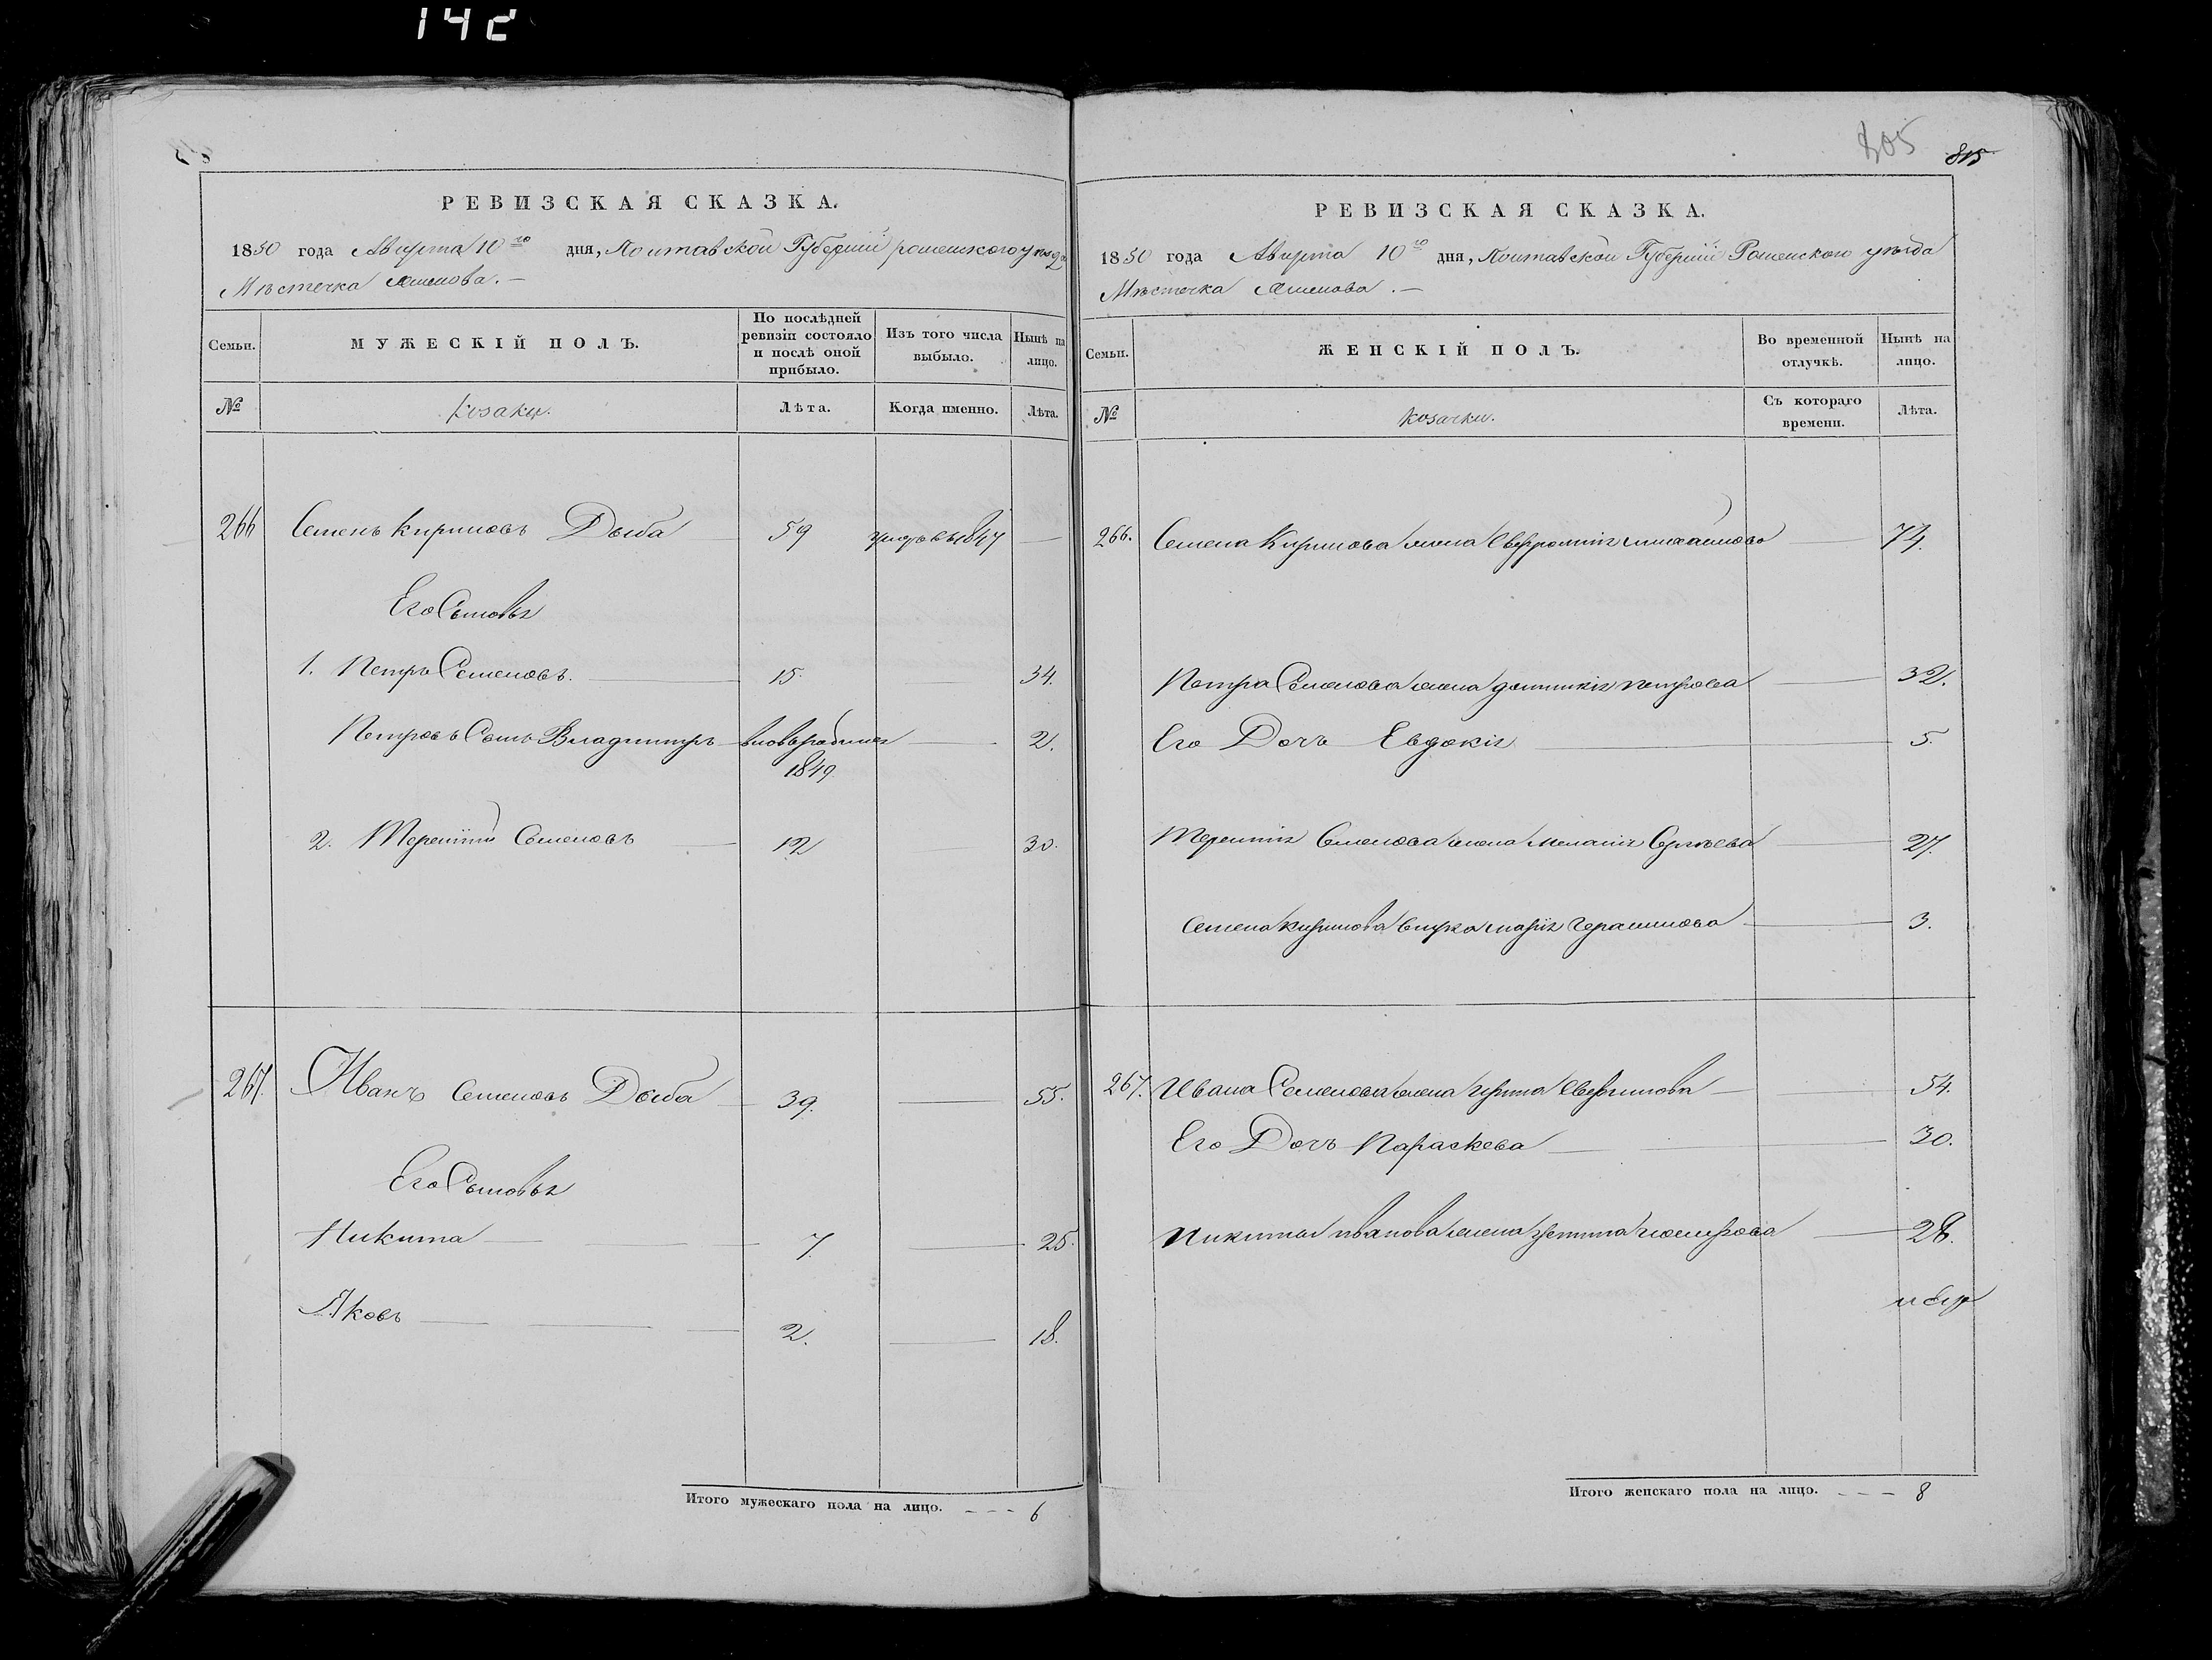 142
РЕВИЗСКАЯ СКАЗКА.
1850 года Августа 10го дня, Полтавской Губерніи роменского уѣзда
Мѣстечка
Семьи.
МУЖЕСКІЙ ПОЛЪ.
По послѣдней ревизіи состояло и послѣ оной прибыло.
Изъ того числа выбыло.
Нынѣ на лицо.
№
козаки.
Лѣта.
Когда именно.
Лѣта.
266 Семенъ Кириловъ Дыба 59 въ 1847 —
Его Сыновья
1. Петръ Семеновъ. 15. 34.
Петровъ Сынъ Владимиръ вновьрожден 2.
1849
2. Терентій Семеновъ 12 30.
267. Иванъ Семеновъ Дыба 39. 55.
Его Сыновья
Никита 7. 25.
Яковъ 2. 18.
Итого мужескаго пола на лицо. 6
805 815
РЕВИЗСКАЯ СКАЗКА.
1850 года Августа 10го дня, Полтавской Губерніи Роменского уѣзда
Мѣстечка
Семьи.
ЖЕНСКІЙ ПОЛЪ.
Во временной отлучкѣ.
Нынѣ на лицо.
№
козачки.
Съ котораго времени.
Лѣта.
266. Семена Кирилова жена Евфросинія михайлова 74.
Петра Семенова жена петрова 32.
Его Дочь Евдокія 5.
Терентія Семенова жена Меланія Сергѣева 27.
Семена кирилова внука марія Герасимова 3.
267. Ивана Семенова жена Ирина 54.
Его Дочь Параскева 30.
Никиты иванова жена 28.
Итого женскаго пола на лицо. 8